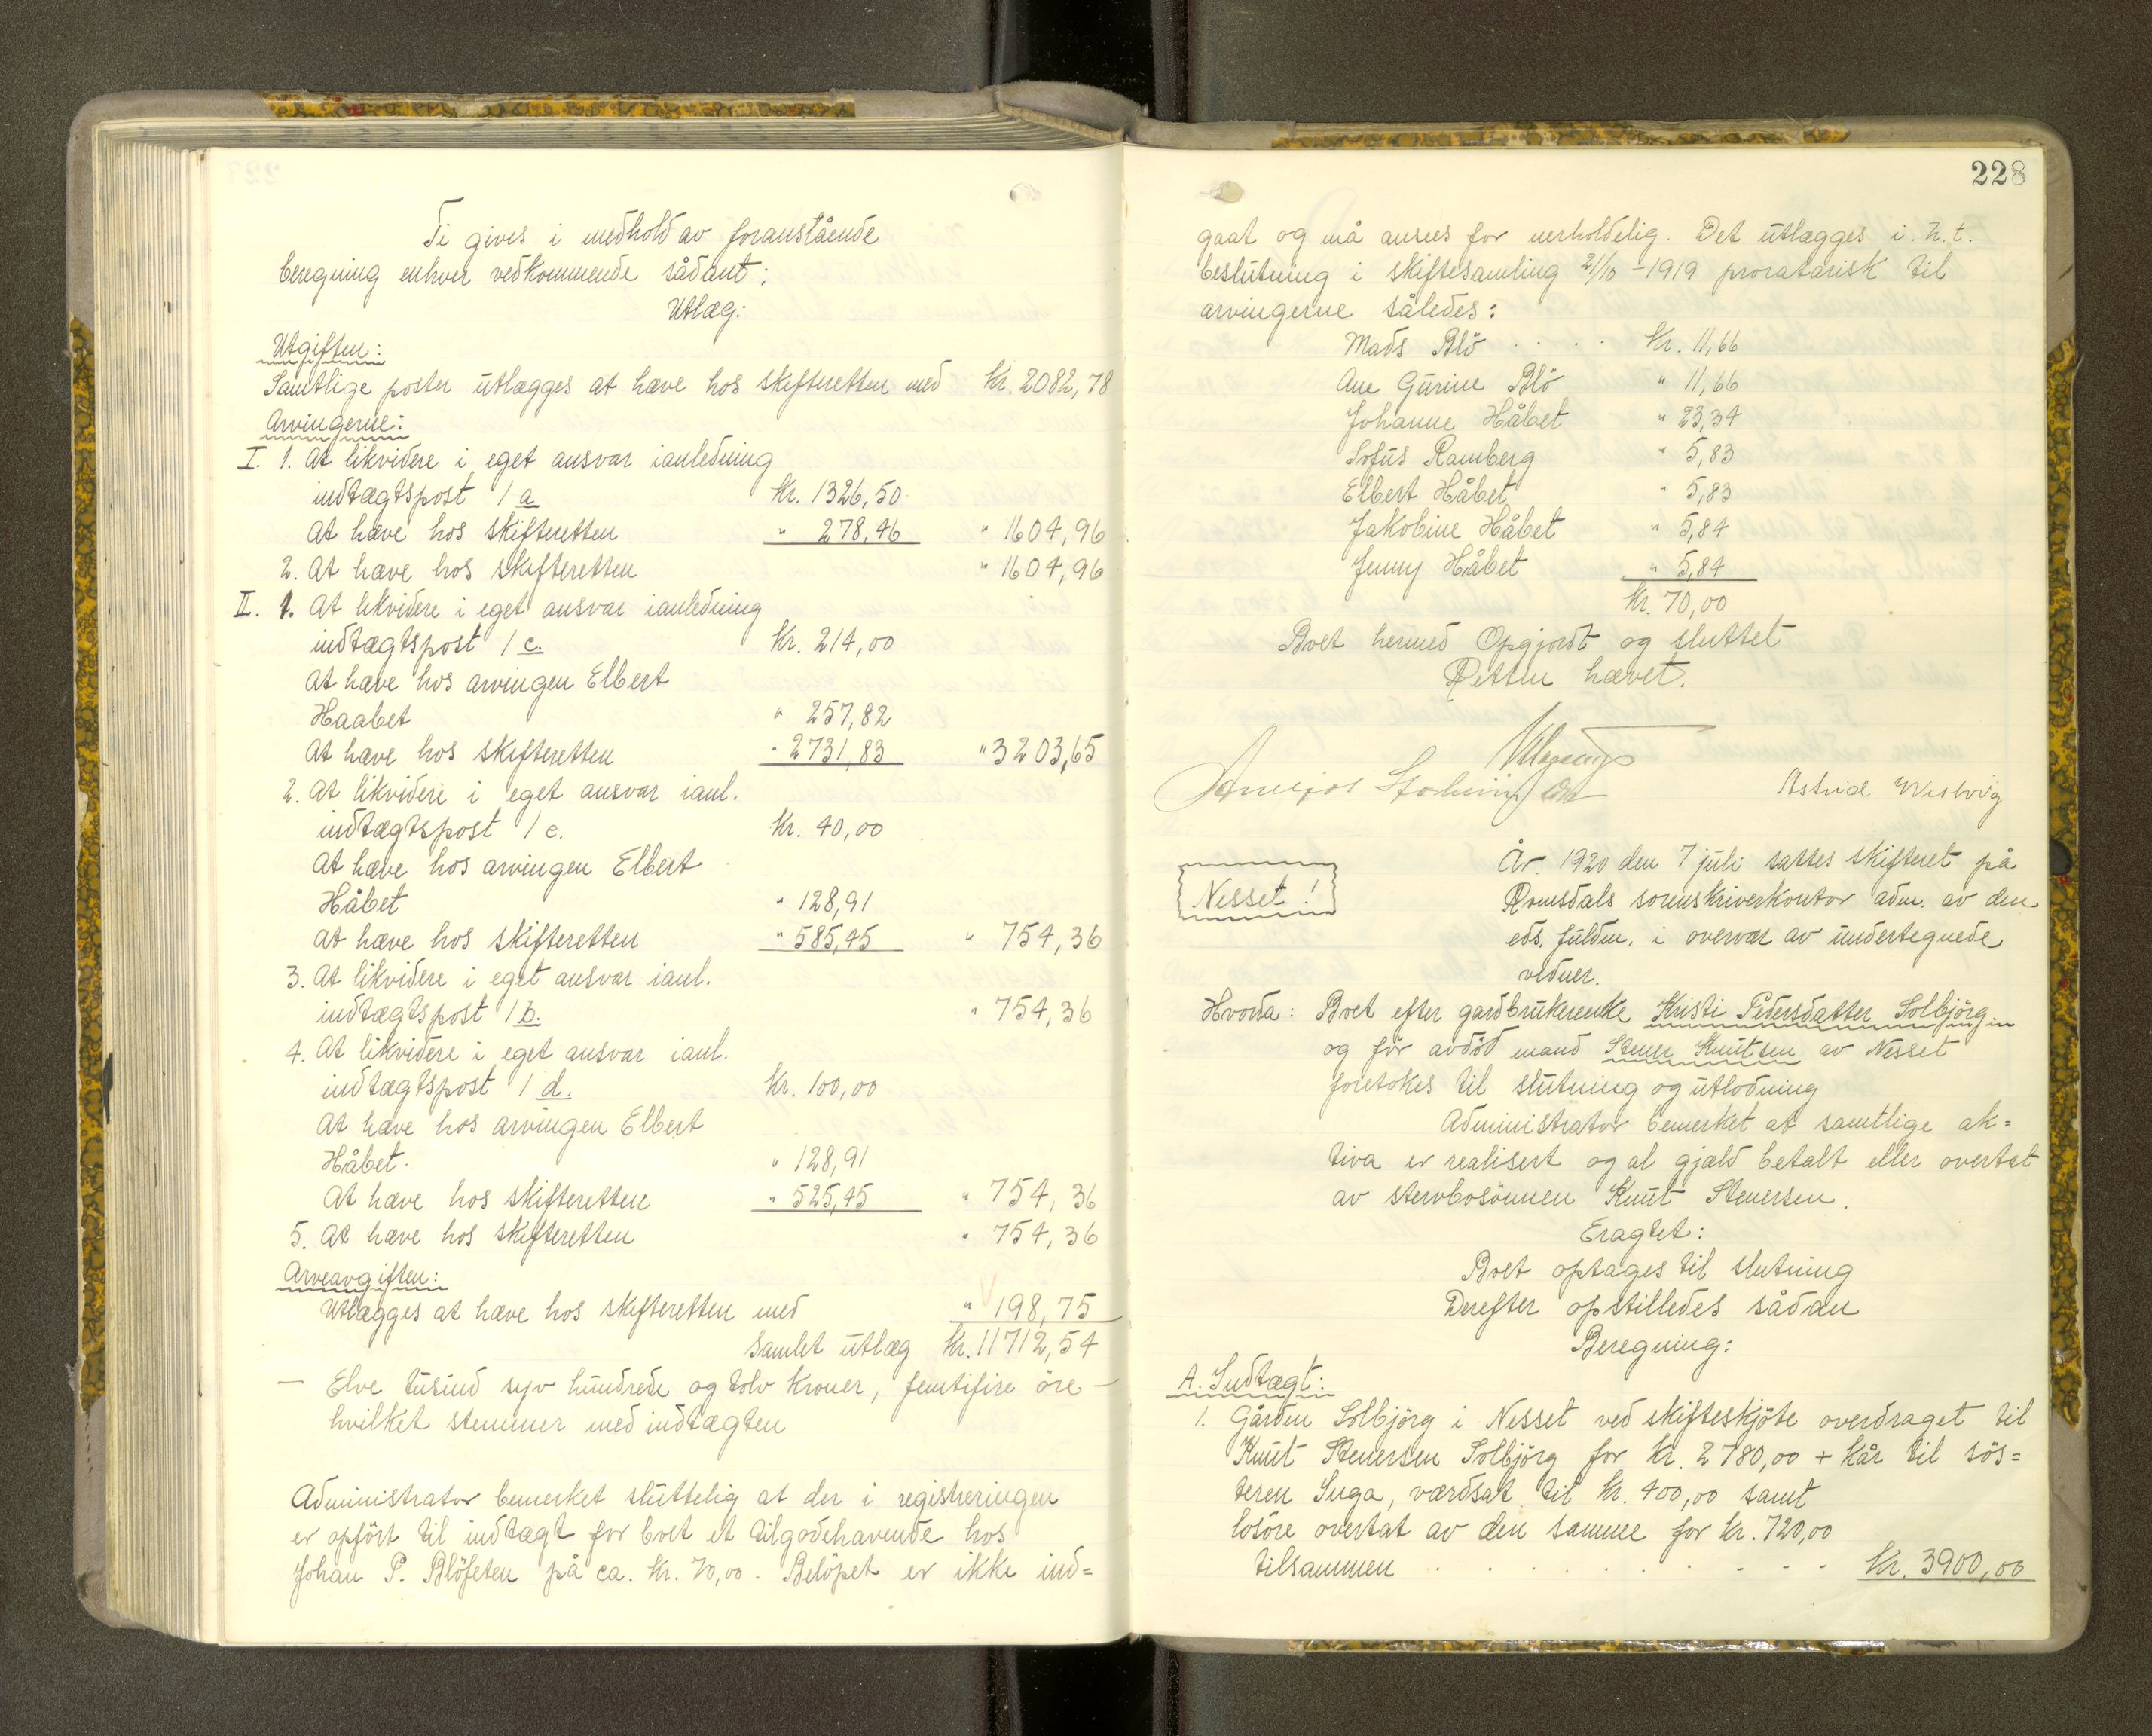 Ti gives i medhold av foranstående
beregning enhver vedkommende sådant:
Utlæg:
Utgiften:
Samtlige poster utlægges at hæve hos skifteretten med Kr. 2082,78
Arvingerne:
I. 1. At likvidere i eget ansvar ianledning
indtægtspost 1 a Kr. 1326,50
At hæve hos skifteretten " 278,46 " 1604,96
2. At hæve hos skifteretten " 1604,96
II. 1. At likvidere i eget ansvar ianledning
indtægtspost 1 c. Kr. 214,00
At hæve hos arvingen Elbert
Haabet " 257,82
At hæve hos skifteretten " 2731,83 " 3203,65
2. At likvidere i eget ansvar ianl.
indtægtspost 1 e. Kr. 40,00
At hæve hos arvingen Elbert
Håbet " 128,91
At hæve hos skifteretten " 585,45 " 754,36
3. At likvidere i eget ansvar ianl.
indtægtspost 1 b. " 754,36
4. At likvidere i eget ansvar ianl.
indtægtspost 1 d. Kr. 100,00
At hæve hos arvingen Elbert
Håbet. " 128,91
At hæve hos skifteretten " 525,45 " 754,36
5. At hæve hos skifteretten " 754,36
Arveavgiften:
Utlægges at hæve hos skifteretten med " 198,75
Samlet utlæg Kr. 11712,54
— Elve tusind syv hundrede og tolv kroner, femtifire öre —
hvilket stemmer med indtægten
Administrator bemerket sluttelig at der i registreringen
er opfört til indtægt for boet et tilgodehavende hos
Johan P. Blöfeten på ca. Kr. 70,00. Belöpet er ikke ind=
228
gaat og må ansees for uerholdelig. Det utlægges i. h. t.
beslutning i skiftesamling 21/10 - 1919 proratarisk til
arvingerne således:
Mads Blö . . . . Kr. 11,66
Ane Gurine Blö " 11,66
Johanne Håbet " 23,34
Sofus Ramberg " 5,83
Elbert Håbet " 5,83
Jakobine Håbet " 5,84
Jenny Håbet " 5,84
Kr. 70,00
Boet hermed Opgjordt og sluttet
Retten hævet.
Astrid
Nesset!
År 1920 den 7 juli sattes skifteret på
Romsdals sorenskriverkontor adm. av den
eds. fuldm. i overvær av undertegnede
vidner.
Hvorda: Boet efter gardbrukerenke Kristi Pedersdatter Solbjörg
og för avdöd mand Stener Knutsen av Nesset
foretokes til slutning og utlodning
Administrator bemerket at samtlige ak=
tiva er realisert og al gjæld betalt eller overtat
av stervbosönnen Knut Stenersen.
Eragtet:
Boet optages til slutning
Derefter opstilledes sådan
Beregning:
A. Indtægt:
1. Gården Solbjörg i Nesset ved skifteskjöte overdraget til
Knut Stenersen Solbjörg for Kr. 2780,00 + kår til sös=
teren Inga, værdsat til Kr. 400,00 samt
lösöre overtat av den samme for kr. 720,00
tilsammen . . . . . . . . Kr. 3900,00